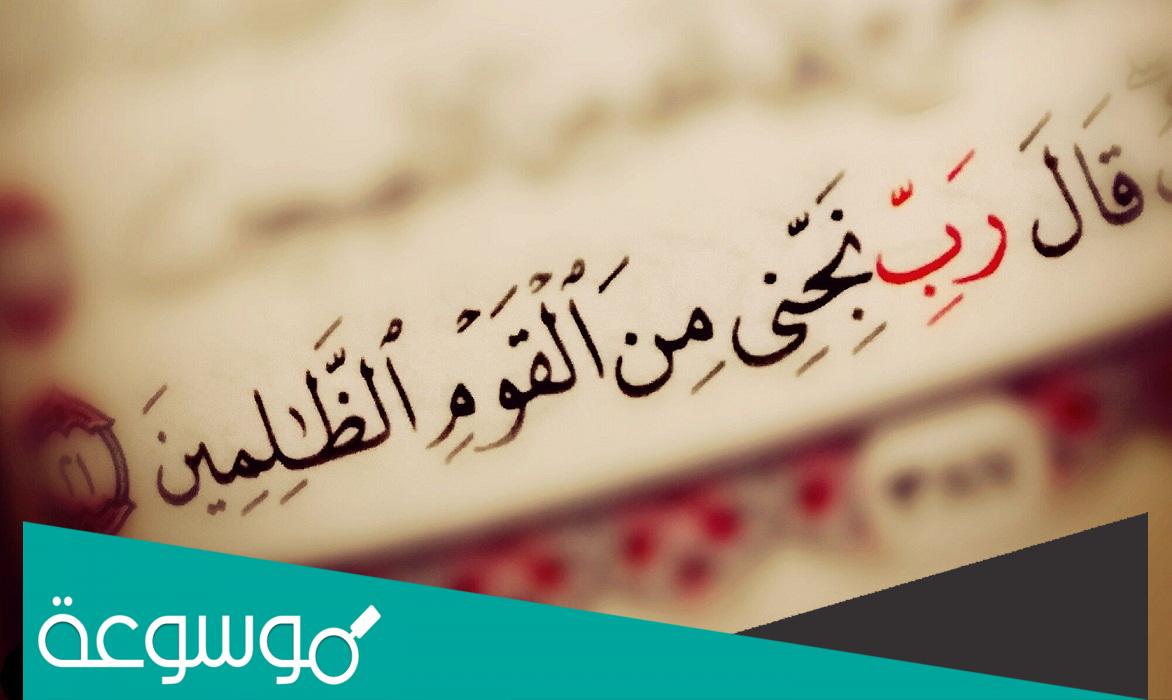 قَالَ رَبِّ نَجِّنِى مِنَ ٱلْقَوْمِ ٱلظَّـٰلِمِينَ ٢١
موسوعة